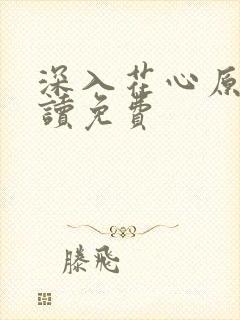 深入花心原
讀免費
滕飛